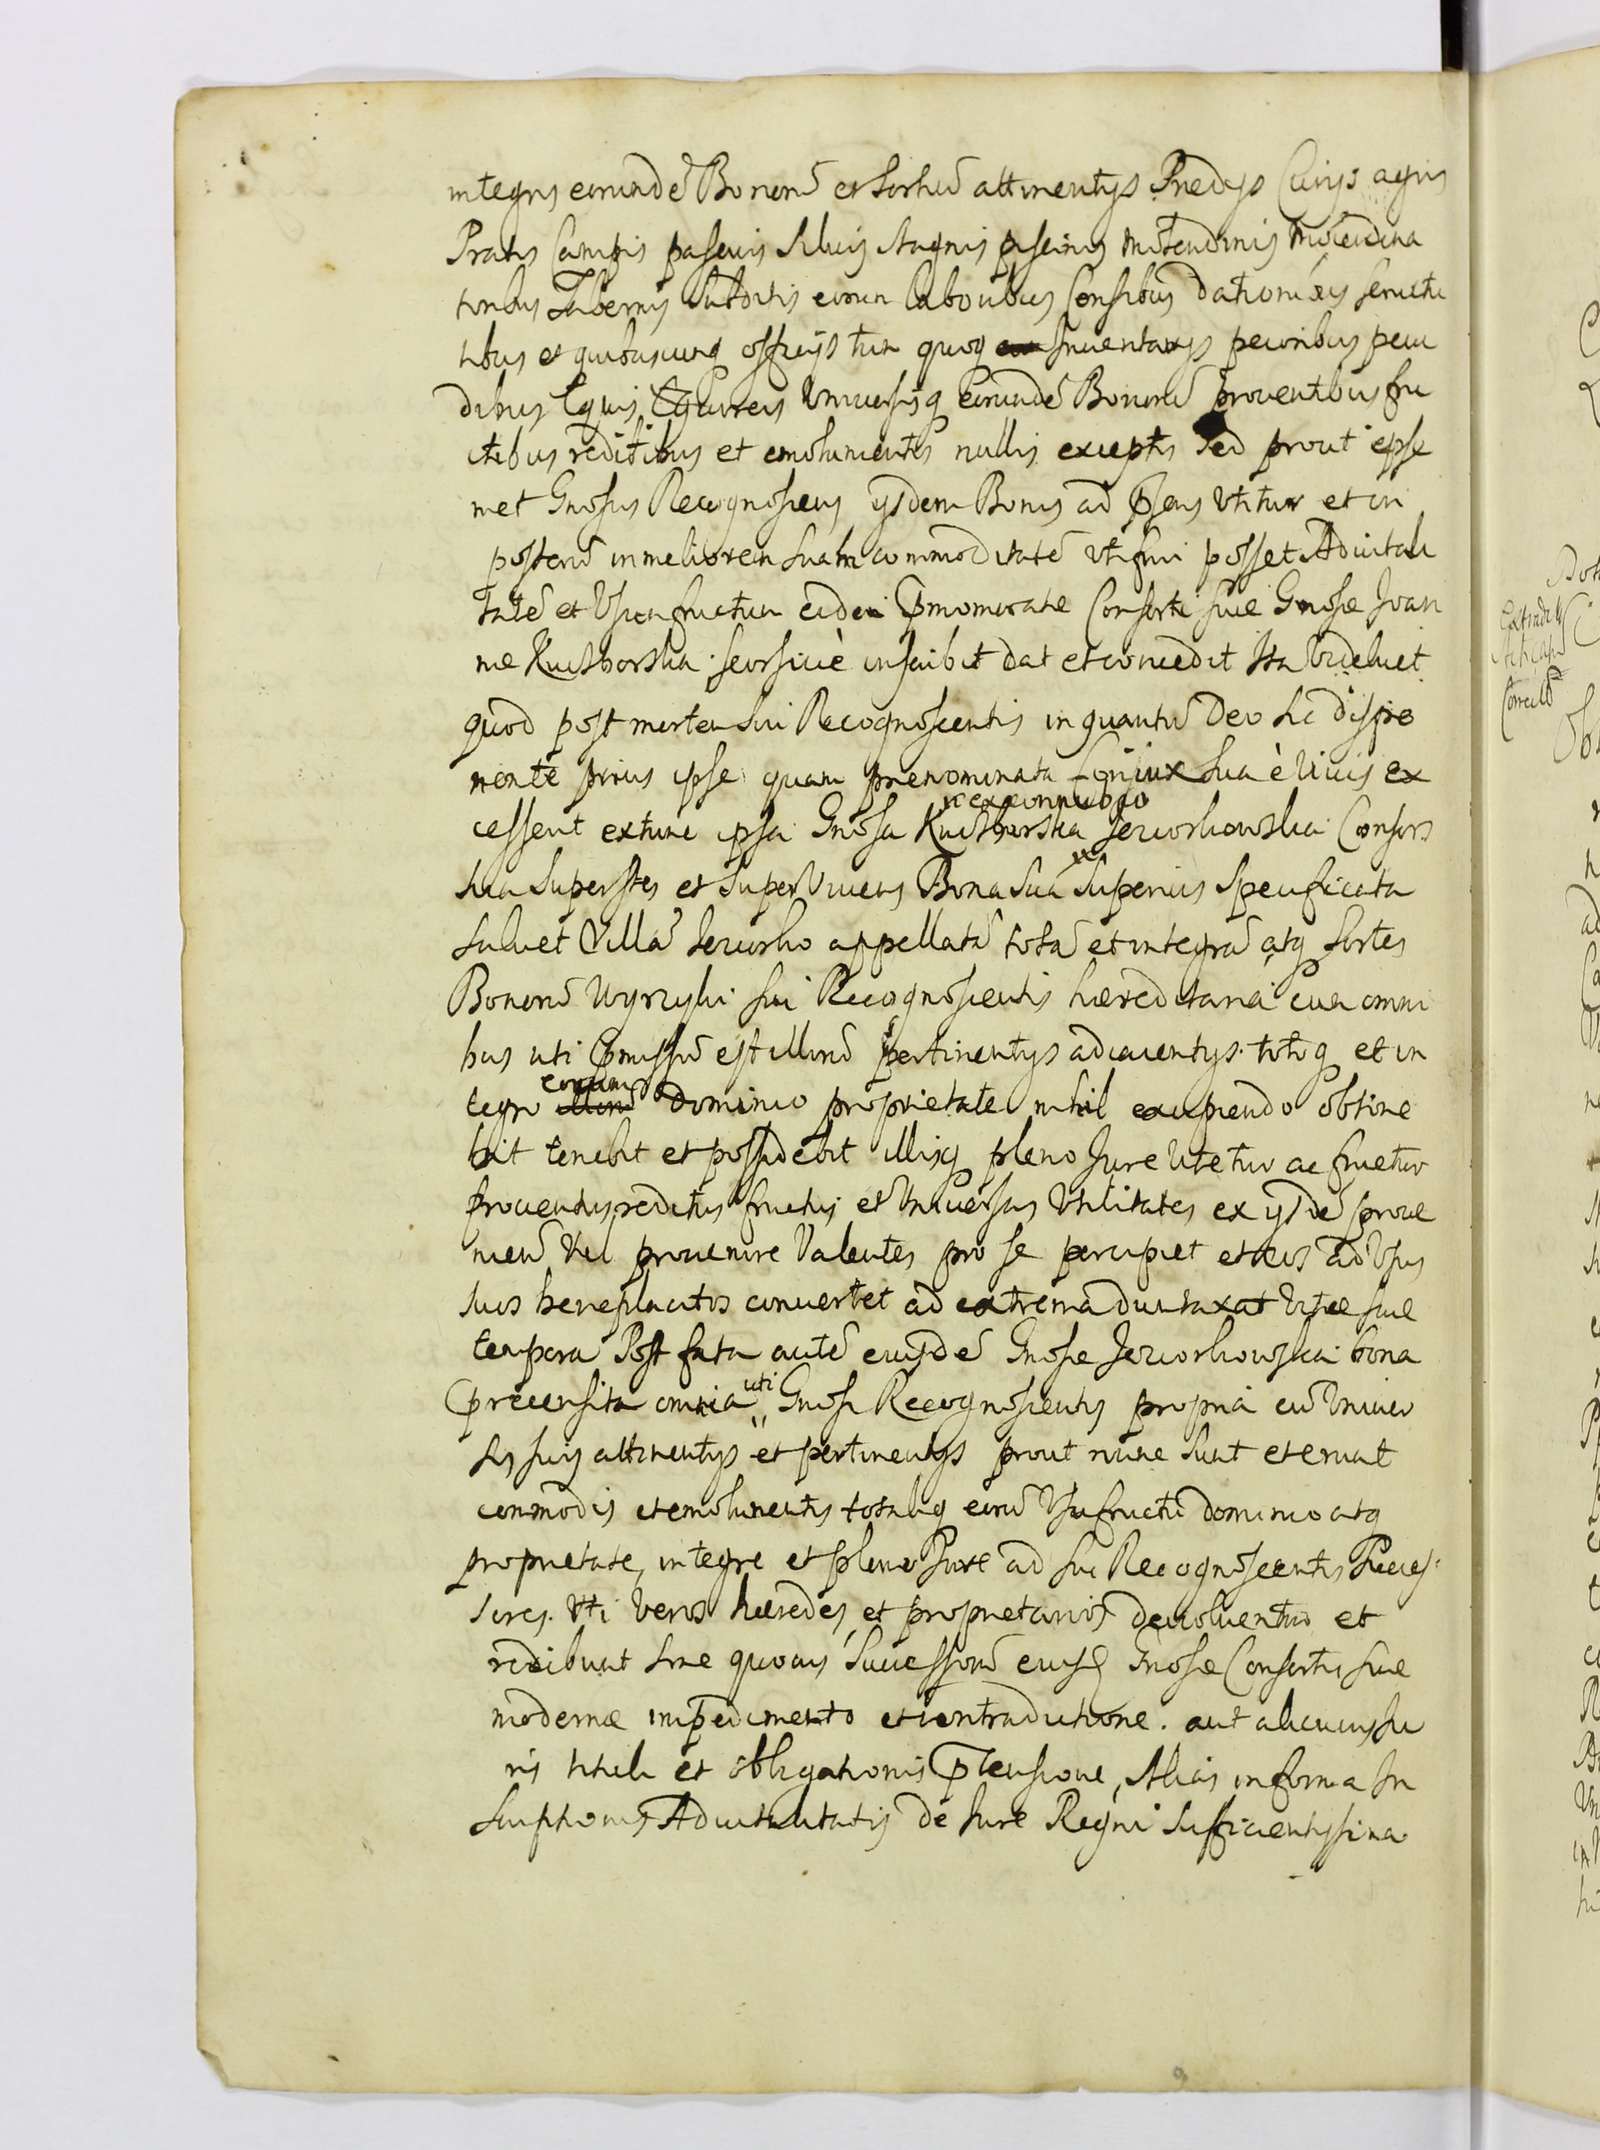 integris eorundē Bonorū et Sortiū attinentijs Praedijs Curijs agris
Pratis Campis pascuis Siluis stagnis piscinis molendinis molendina
toribus Tabernis Subditis eorum laboribus Censibus dationibus seruitu
tibus et quibuscunq officijs tum quoq Inuentarijs pecoribus pecu
dibus Equis Equireis Vniuersisq Eorundē Bonorū prouentibus fru
ctibus reditibus et emolumentis nullis exceptis sed prout ipse
met Gnosus Recognoscens ijsdem Bonis ad p̄sens Vtitur et in
posterū in meliorem suam commoditatē vtifrui posset Aduitali
tatē et Vsumfructum eidem p̄nominatae Conforti suae Gnosae Joan
nae Kuczborska seorsiuè inscribit dat et concedit Ita Videlicet
quod post mortem sui Recognoscentis in quantū Deo sic dispo
nente prius ipse quam praenominata Conjux sua è Viuis ex
cesserit extunc ipsa Gnosa Kuczborska Jeziorkowska Consors
sua superstes et superViuens Bona sua superius specificata
Siluet Villā Jeziorko appellatā totā et integrā atq sortes
Bonorū Wyrzyki sui Recognoscentis haereditaria cum omni
bus uti p̄missū est illorū pertinentijs adiacentijs totoq et in
tegro eorum dominio proprietate nihil excipiendo obtine
bit tenebit et possidebit illisq pleno Jure Utetur ac fruetur
prouentus reditus fructus et Vniuersas Vtilitates ex ijsdē proue
nien vel prouenire Valentes pro se percipiet et eos ad Vsus
suos beneplacitos conuertet ad extrema duntaxat Vitae suae
tempora Post fata autē eiusdē Gnosae Jeziorkowska bona
p̄recensita omnia uti Gnosi Recognoscentis propria cū Vniuer
sis suis attinentijs et pertinentijs prout nunc sunt et erunt
commodis et emolumentis totaliq eorū Vsufructu dominio atq
proprietate, integre et pleno Jure ad sui Recognoscentis Succes
sores. Vti veros haeredes et proprietarios deuoluentur et
redibunt sine quouis Successorū eiusd Gnosae Consortis suae
modernae impedimento et contradictione. aut alicuius Ju
ris tituli et obligationis p̄tensione, Alias in forma In
scriptionis Aduitalitatis de Jure Regni sufficientissima